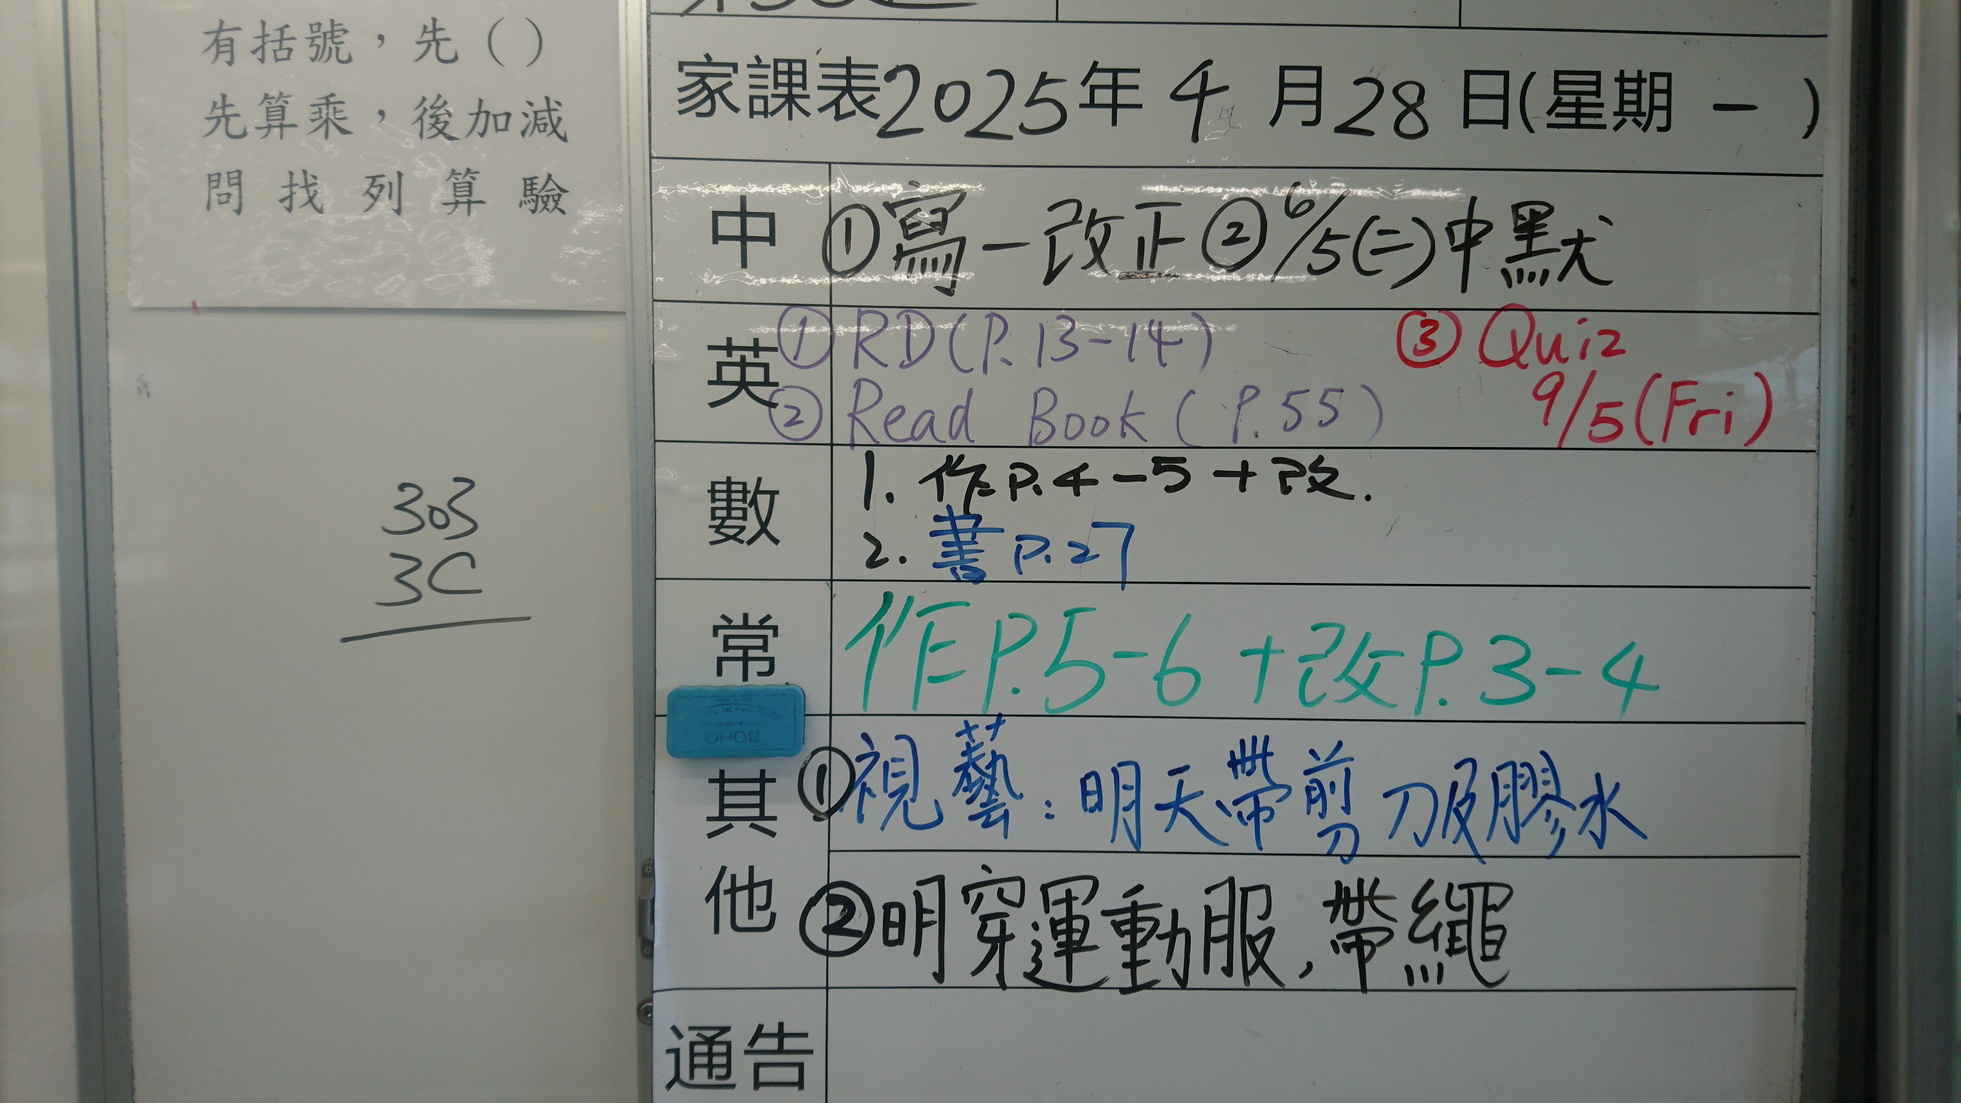 有括號，先（）
先算乘，後加減
問找列算驗
303
3C
家課表2025年4月28日(星期一)
中 ①寫一改正②6/5(二)中默
英 ①RD(P.13-14) ③Quiz
②Read Book(P.55) 9/5(Fri)
數 1. 作P.4-5+改.
2. 書P.27
常 作P.5-6+改P.3-4
其他 ①視藝：明天帶剪刀及膠水
②明穿運動服,帶繩
通告
SOHO